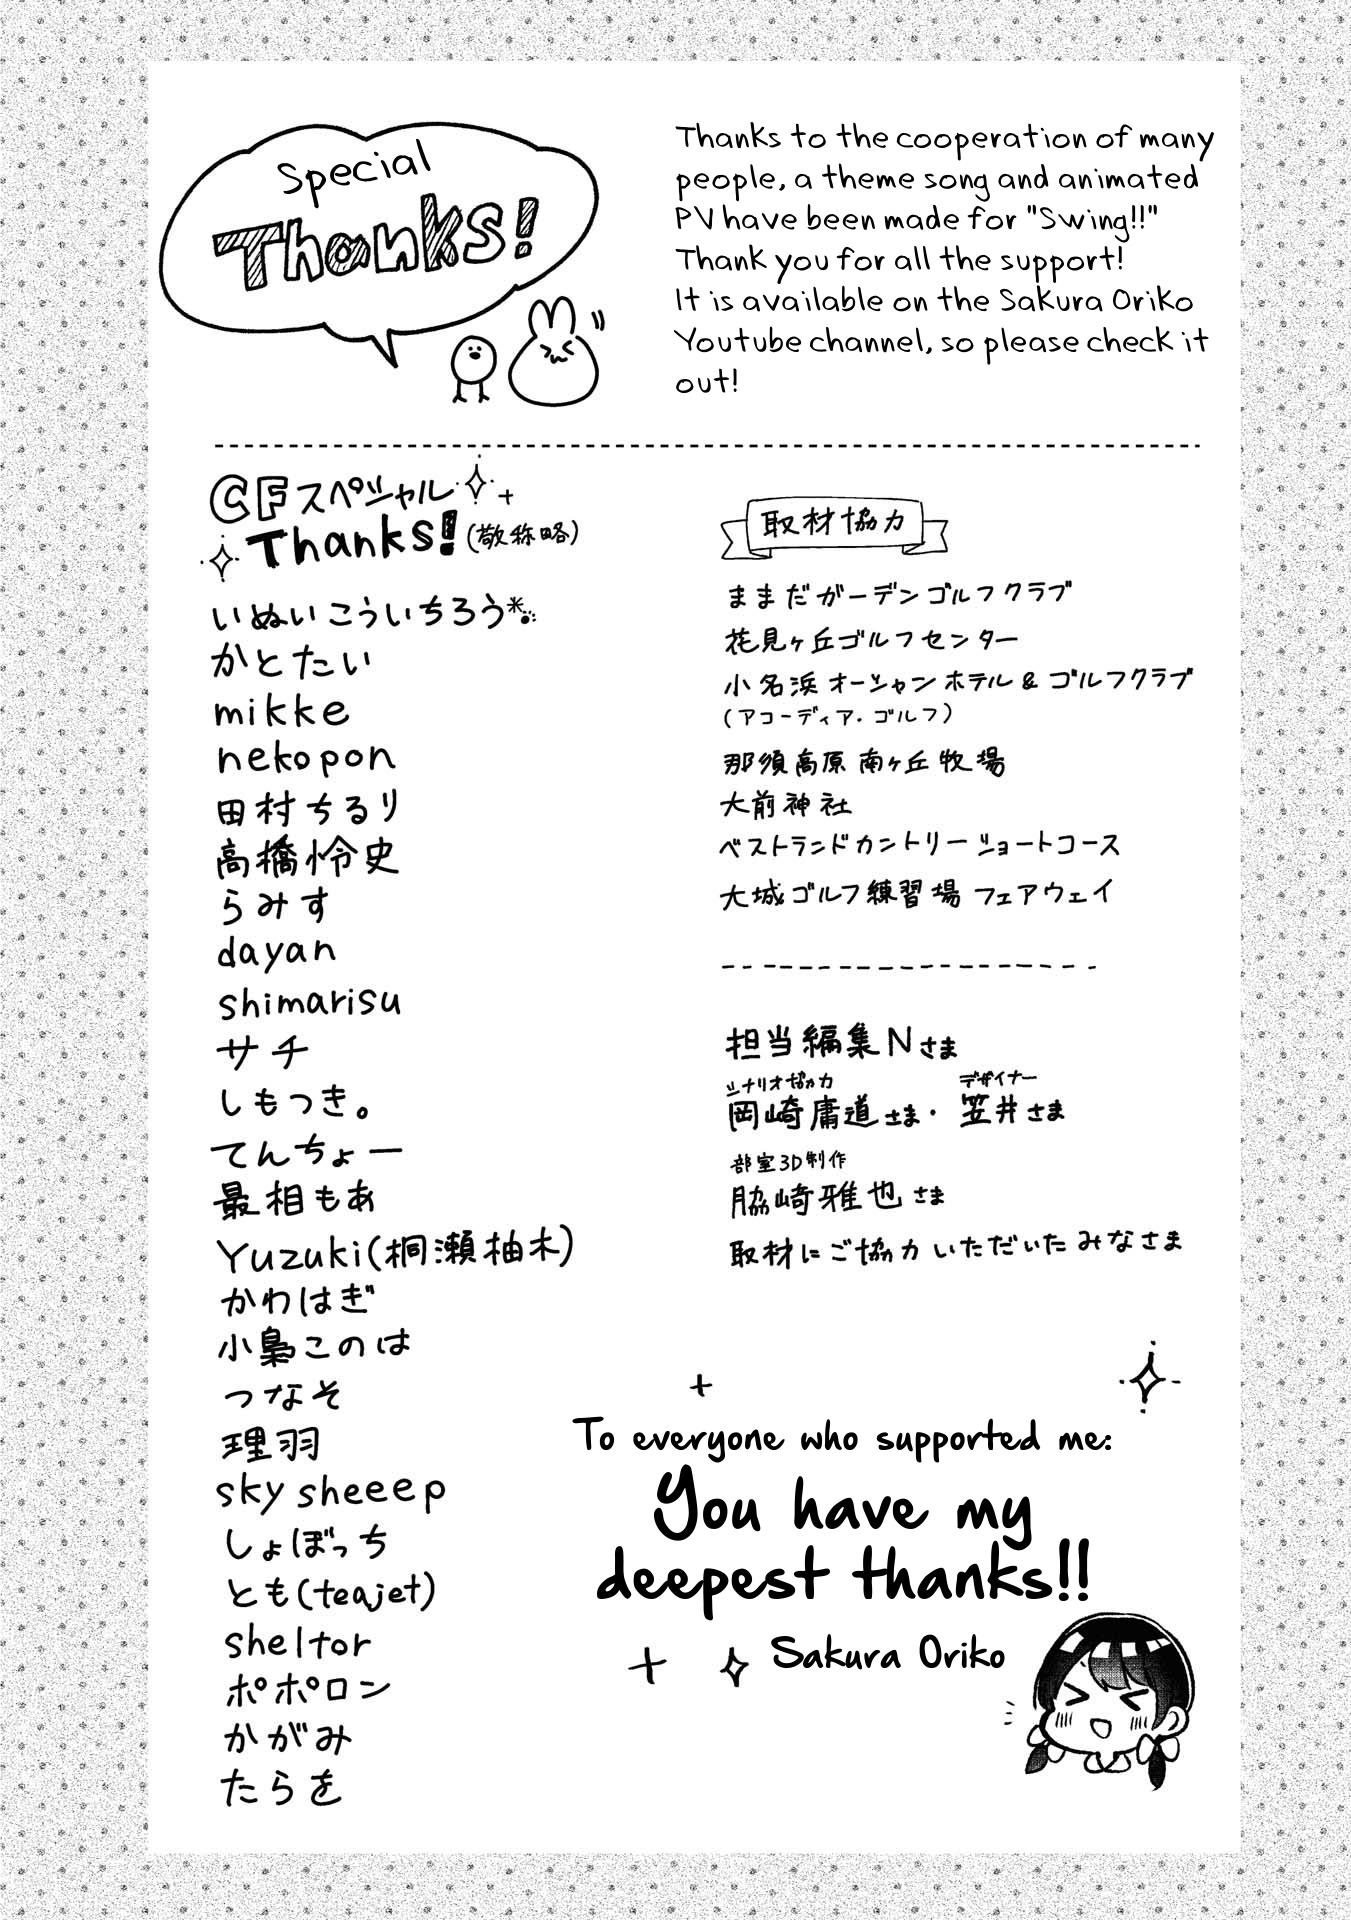 Special
Thanks!
Thanks to the cooperation of many
people, a theme song and animated
PV have been made for "Swing!!"
Thank you for all the support!
It is available on the Sakura Oriko
Youtube channel, so please check it
out!
CFスペシャル
Thanks!(敬称略)
いぬいこういちろう
かとたい
mikke
nekopon
田村ちるり
高橋怜史
らみす
dayan
shimarisu
サチ
しもつき。
てんちょー
最相もあ
Yuzuki(桐瀬柚木)
かわはぎ
小梟このは
つなそ
理羽
sky sheeep
しょぼっち
とも(teajet)
sheltor
ポポロン
かがみ
たらを
取材協力
ままだガーデンゴルフクラブ
花見ヶ丘ゴルフセンター
小名浜オーシャンホテル&ゴルフクラブ
(アコーディア・ゴルフ)
那須高原南ヶ丘牧場
大前神社
ベストランドカントリーショートコース
大城ゴルフ練習場 フェアウェイ
担当編集Nさま
シナリオ協力 デザイナー
岡崎庸道さま・笠井さま
部室3D制作
脇崎雅也さま
取材にご協力いただいたみなさま
To everyone who supported me:
You have my
deepest thanks!!
Sakura Oriko